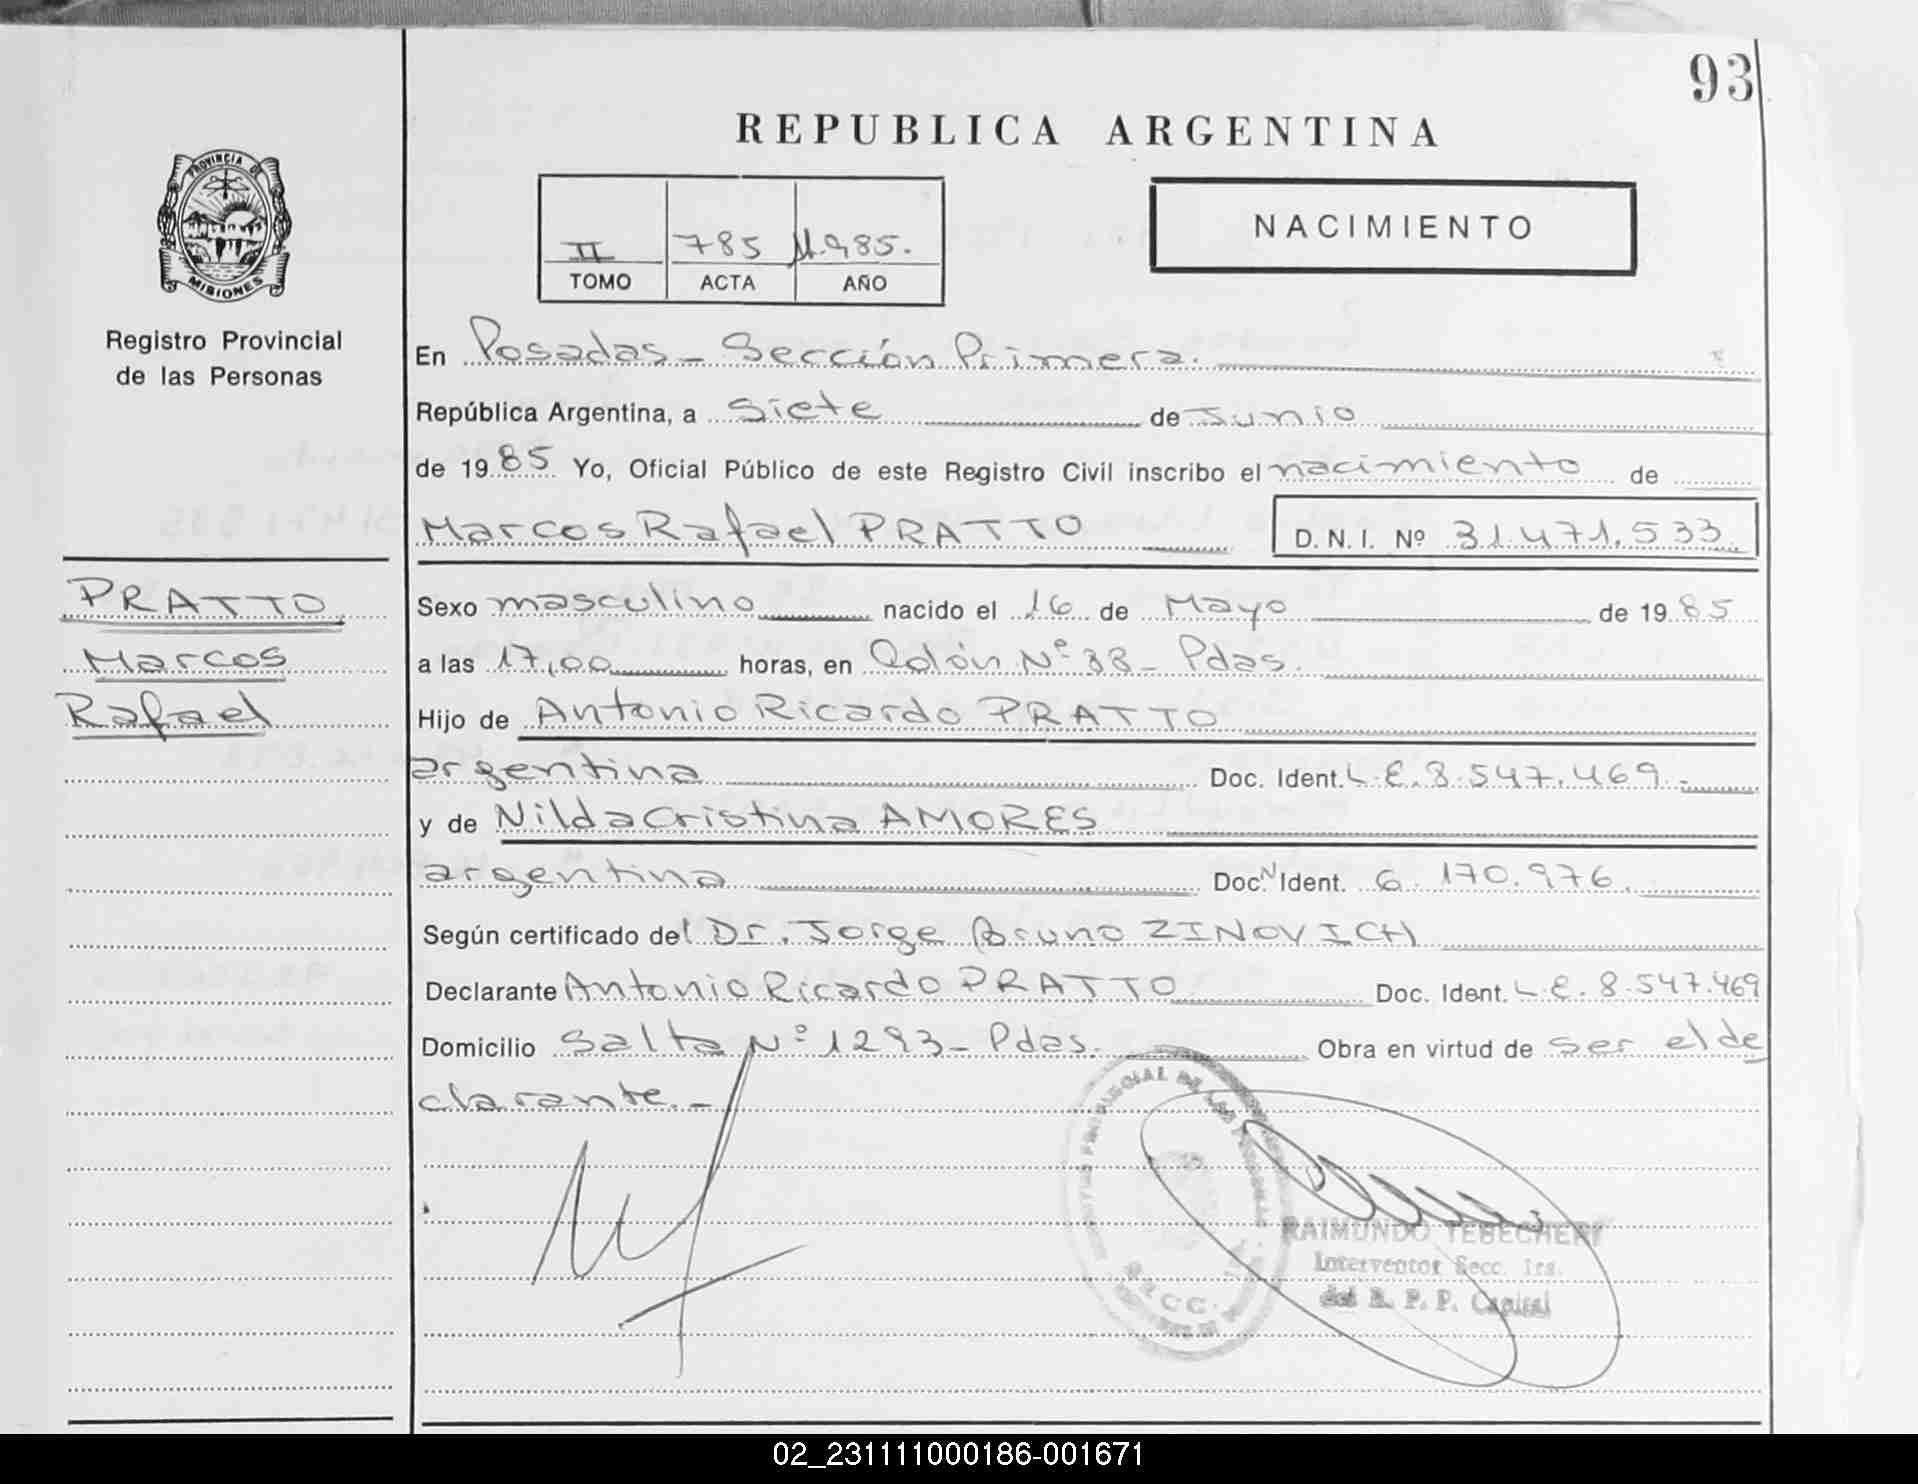 93
REPUBLICA ARGENTINA
PROVINCIA DE
MISIONES
Registro Provincial
de las Personas
II 785 1.985.
TOMO ACTA AÑO
NACIMIENTO
En Posadas - Sección Primera.
República Argentina, a Siete de Junio
de 1985 Yo, Oficial Público de este Registro Civil inscribo el nacimiento de
Marcos Rafael PRATTO D.N.I. Nº 31.471.533.
PRATTO
Marcos
Rafael
Sexo masculino nacido el 16 de Mayo de 1985
a las 17,00 horas, en Colón Nº 38 - Pdas.
Hijo de Antonio Ricardo PRATTO
argentina Doc. Ident. L.E. 8.547.469.-
y de Nilda Cristina AMORES
argentina Doc. N Ident. 6.170.976.
Según certificado del Dr. Jorge Bruno ZINOVICH
Declarante Antonio Ricardo PRATTO Doc. Ident. L.E. 8.547.469
Domicilio Salta Nº 1293 - Pdas. Obra en virtud de ser el de
clarante.-
RAIMUNDO TEBECHERI
Interventor Secc. 1ra.
del R. P. P. Capital
02_231111000186-001671